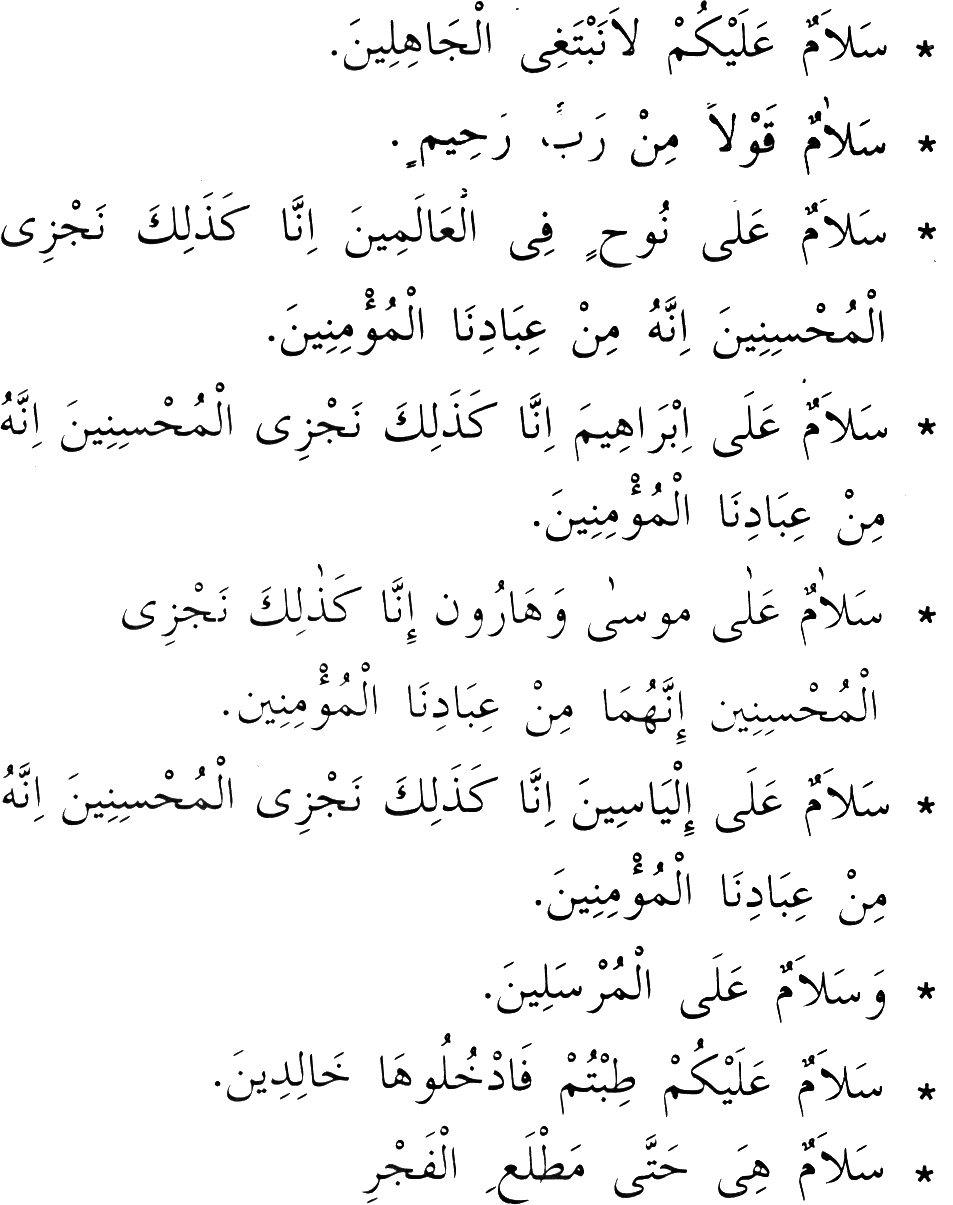 * سَلاَمٌ عَلَيْكُمْ لاَنَبْتَغِى الْجَاهِلِينَ.
* سَلاٰمٌ قَوْلاً مِنْ رَبٍّ رَحِيمٍ.
* سَلاَمٌ عَلَى نُوحٍ فِى الْعَالَمِينَ اِنَّا كَذَلِكَ نَجْزِى
الْمُحْسِنِينَ اِنَّهُ مِنْ عِبَادِنَا الْمُؤْمِنِينَ.
* سَلاَمٌ عَلَى اِبْرَاهِيمَ اِنَّا كَذَلِكَ نَجْزِى الْمُحْسِنِينَ اِنَّهُ
مِنْ عِبَادِنَا الْمُؤْمِنِينَ.
* سَلاٰمٌ عَلٰى موسىٰ وَهَارُون إِنَّا كَذٰلِكَ نَجْزِى
الْمُحْسِنِين إِنَّهُمَا مِنْ عِبَادِنَا الْمُؤْمِنِين.
* سَلاَمٌ عَلَى إِلْيَاسِينَ اِنَّا كَذَلِكَ نَجْزِى الْمُحْسِنِينَ اِنَّهُ
مِنْ عِبَادِنَا الْمُؤْمِنِينَ.
* وَسَلاَمٌ عَلَى الْمُرْسَلِينَ.
* سَلاَمٌ عَلَيْكُمْ طِبْتُمْ فَادْخُلُوهَا خَالِدِينَ.
* سَلاَمٌ هِىَ حَتَّى مَطْلَعِ الْفَجْرِ